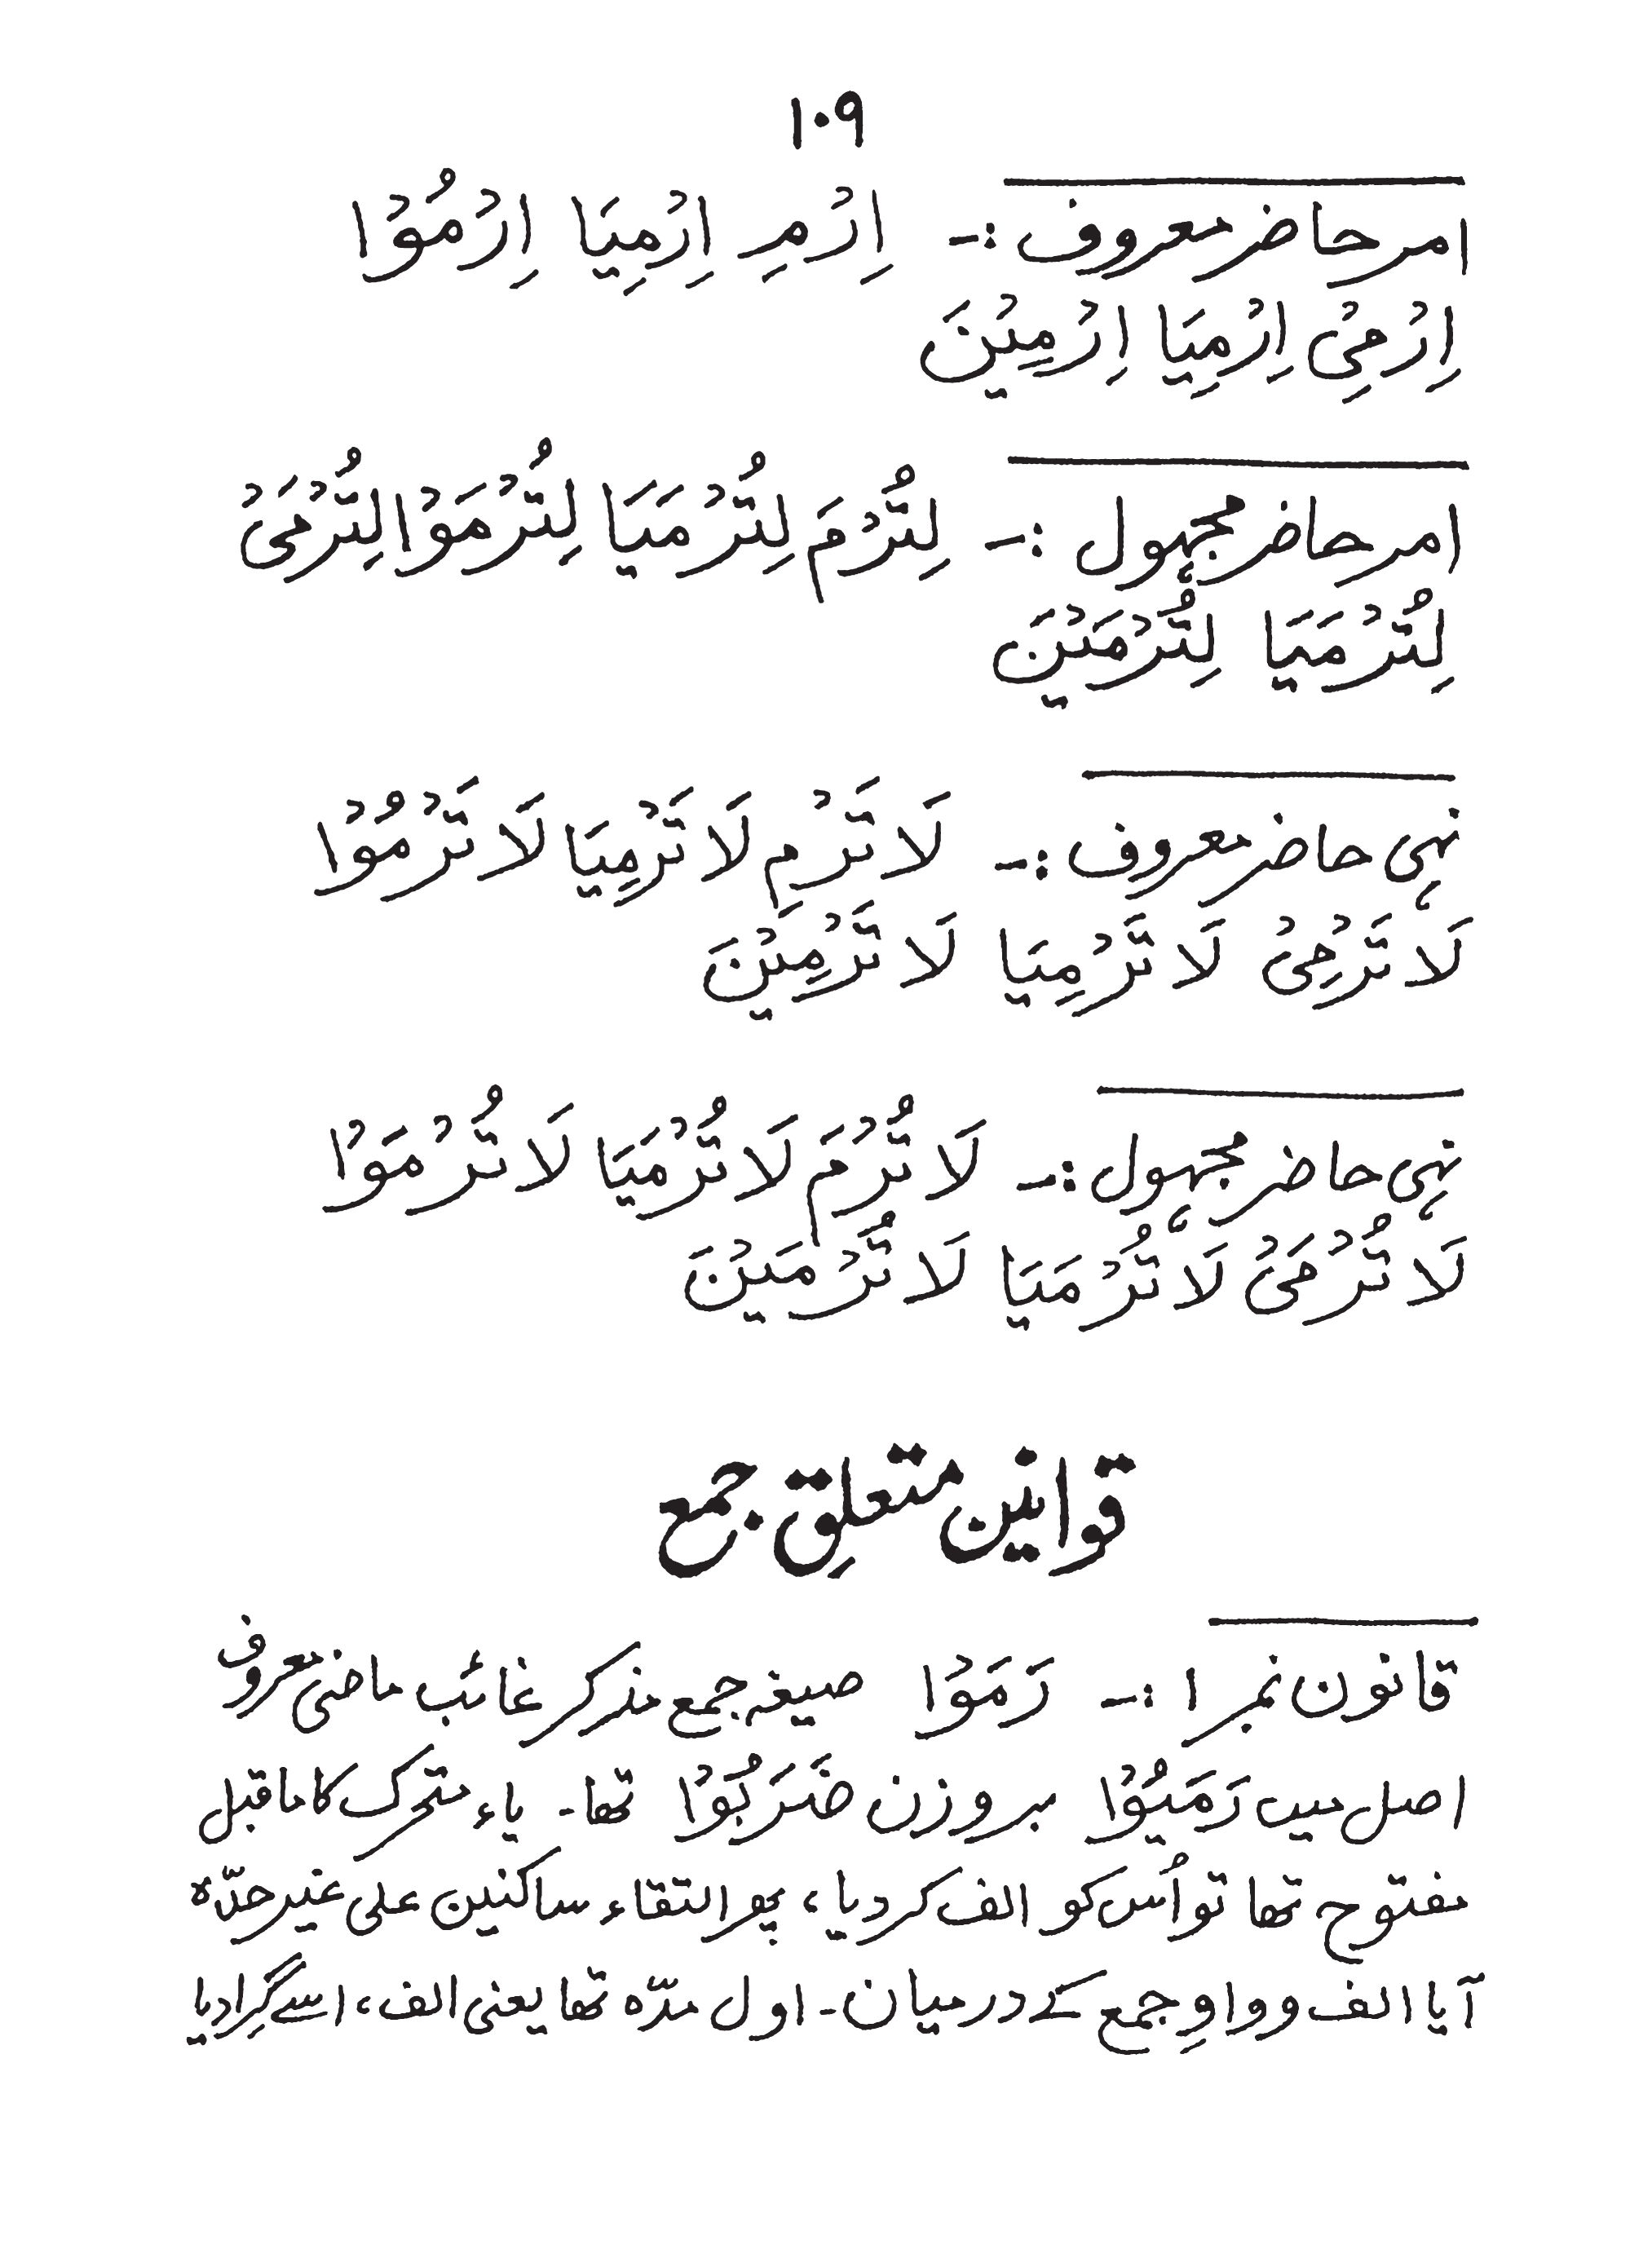 ۱۰۹
امر حاضر معروف :- اِرْمِ اِرْمِيَا اِرْمُوْا
اِرْمِیْ اِرْمِيَا اِرْمِيْنَ
امر حاضر مجہول :- لِتُرْمَ لِتُرْمَيَا لِتُرْمَوْا لِتُرْمَیْ
لِتُرْمَيَا لِتُرْمَيْنَ
نہی حاضر معروف :- لَا تَرْمِ لَا تَرْمِيَا لَا تَرْمُوْا
لَا تَرْمِیْ لَا تَرْمِيَا لَا تَرْمِيْنَ
نہی حاضر مجہول :- لَا تُرْمَ لَا تُرْمَيَا لَا تُرْمَوْا
لَا تُرْمَیْ لَا تُرْمَيَا لَا تُرْمَيْنَ
قوانین متعلقِ جمع
قانون نمبر ۱ :- رَمَوْا صیغہ جمع مذکر غائب ماضی معروف
اصل میں رَمَيُوْا بروزن ضَرَبُوْا تھا۔ یاء متحرک کا ماقبل
مفتوح تھا تو اُس کو الف کر دیا، پھر التقاء ساکنین علی غیر حدّہ
آیا الف و واوِ جمع کے درمیان۔ اول مدّہ تھا یعنی الف، اسے گِرا دیا